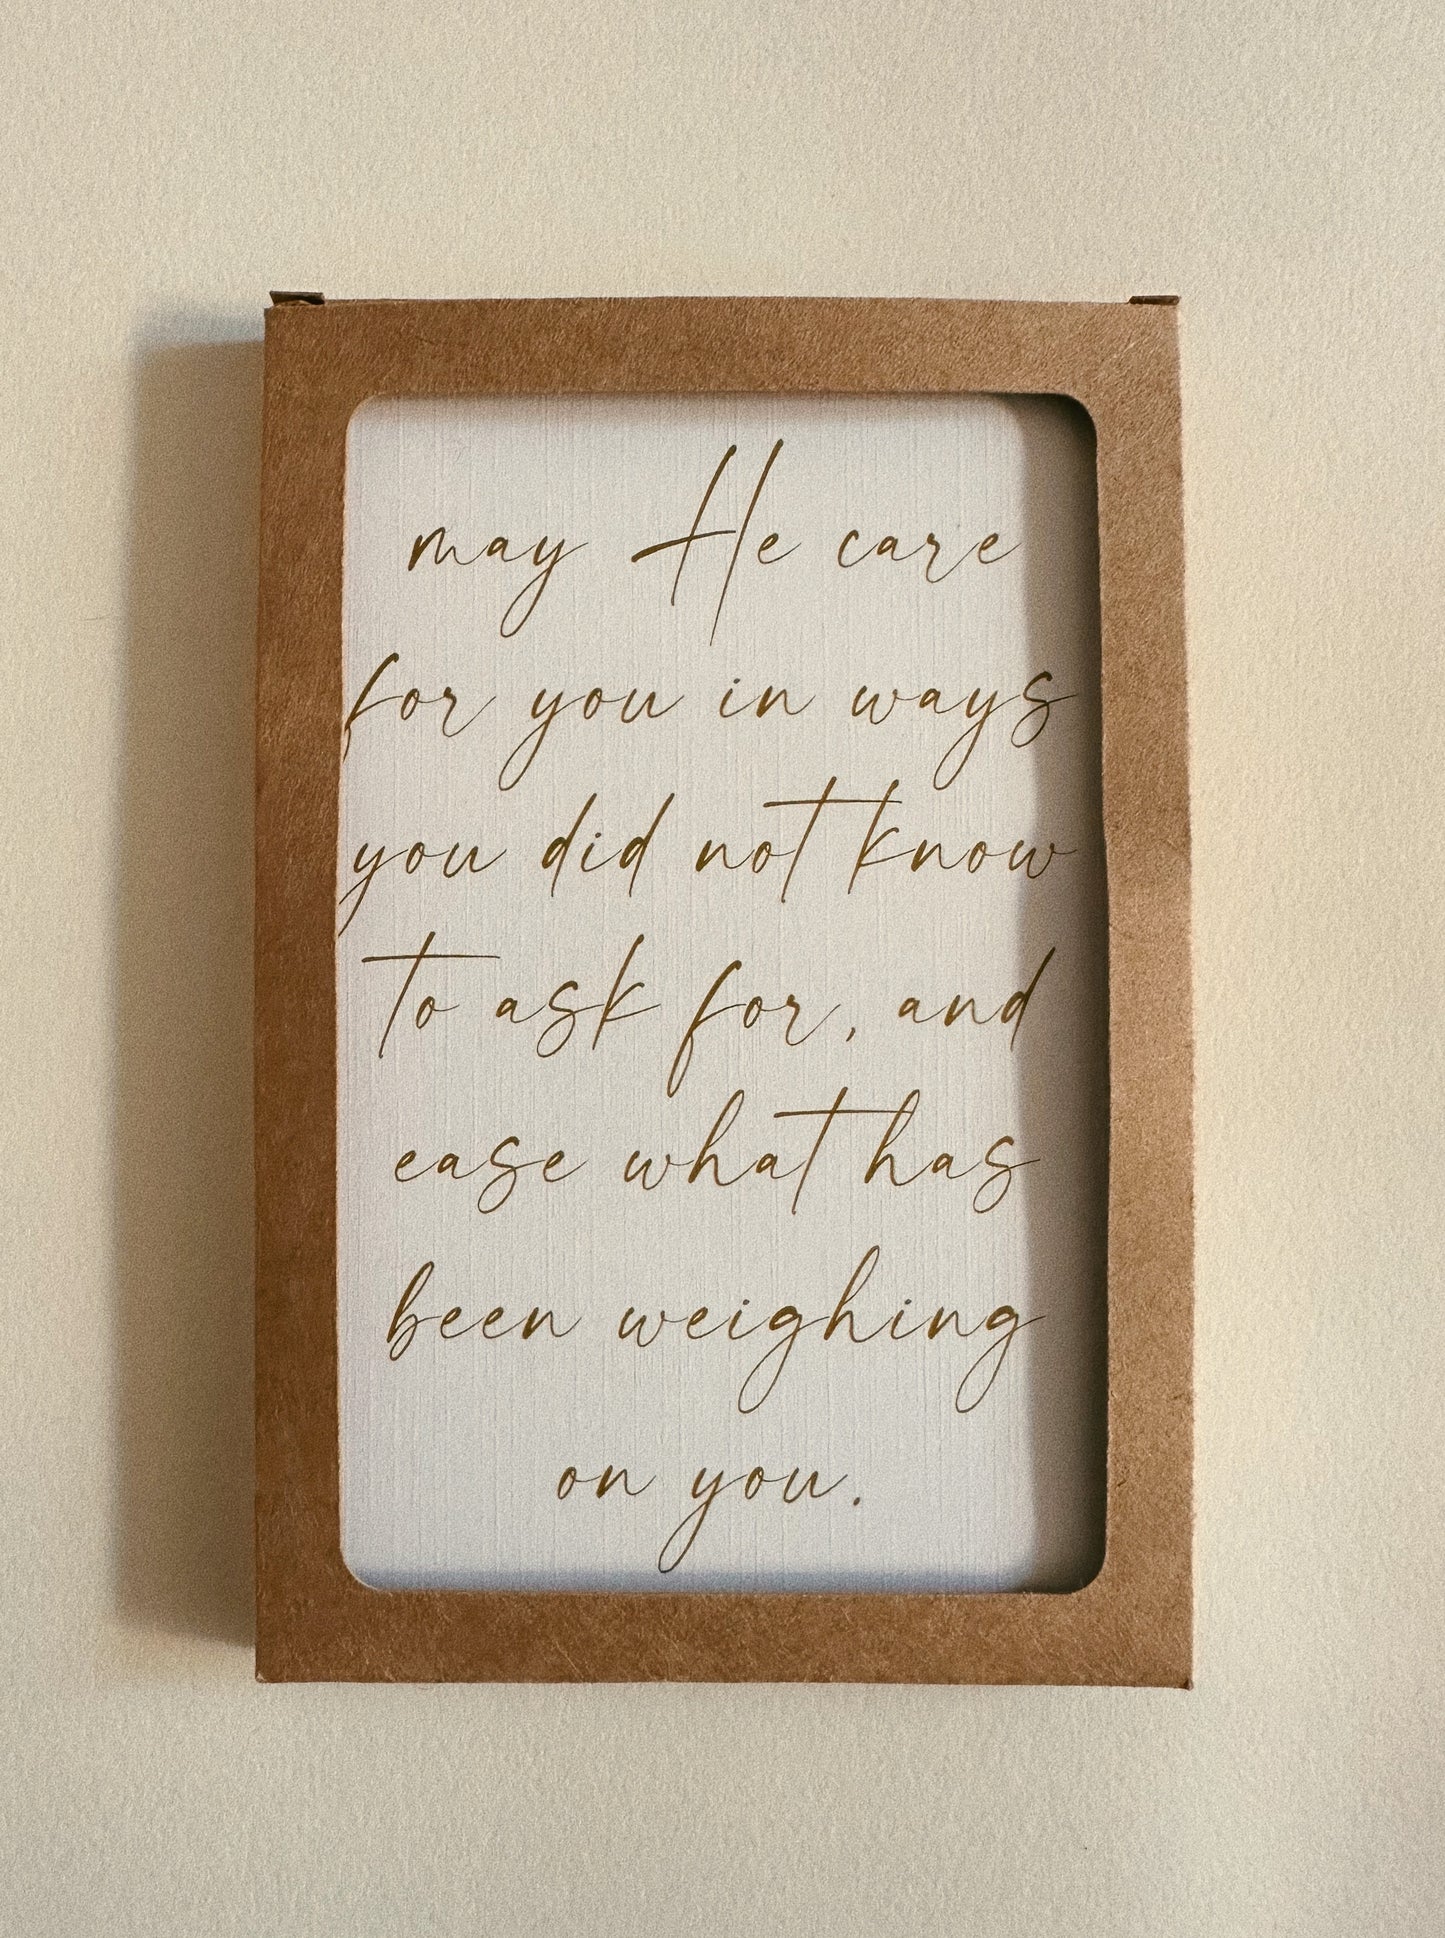 may He care
for you in ways
you did not know
to ask for, and
ease what has
been weighing
on you.